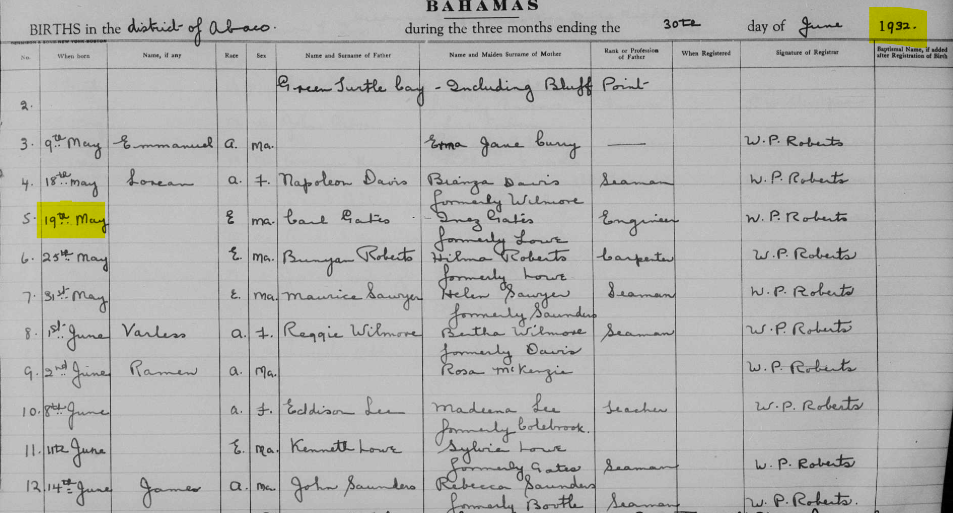 BAHAMAS
BIRTHS in the district of Abaco. during the three months ending the 30th day of June 1932.
No. When born Name, if any Race Sex Name and Surname of Father Name and Maiden Surname of Mother Rank or Profession of Father When Registered Signature of Registrar Baptismal Name, if added after Registration of Birth
Green Turtle Cay - Including Bluff Point
2.
3. 9th May Emmanuel a. ma. Erma Jane Curry — W. P. Roberts
4. 18th May Lorean a. f. Napoleon Davis Bianza Davis Seaman W. P. Roberts
formerly Wilmore
5. 19th May E ma. Carl Gates - Inez Gates Engineer W. P. Roberts
formerly Lowe
6. 25th May E. ma. Bunyan Roberts Hilma Roberts Carpenter W. P. Roberts
formerly Lowe
7. 31st May E. ma. Maurice Sawyer Helen Sawyer Seaman W. P. Roberts
formerly Saunders
8. 1st June Varless a. f. Reggie Wilmore Bertha Wilmore Seaman W. P. Roberts
formerly Davis
9. 2nd June Ramen a. ma. Rosa McKenzie W. P. Roberts
10. 8th June a. f. Eddison Lee Madeena Lee Teacher W. P. Roberts
formerly Colebrook.
11. 11th June E. ma. Kenneth Lowe Sylvia Lowe
formerly Gates Seaman W. P. Roberts
12. 14th June James a. ma. John Saunders Rebecca Saunders
formerly Bootle Seaman W. P. Roberts.